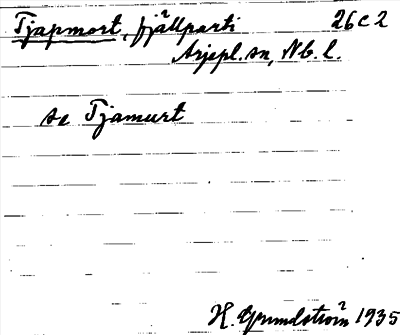 Tjapmort, fjällparti 26C2
Arjepl. sn, Nb. l.
se Tjamurt
H. Grundström 1935